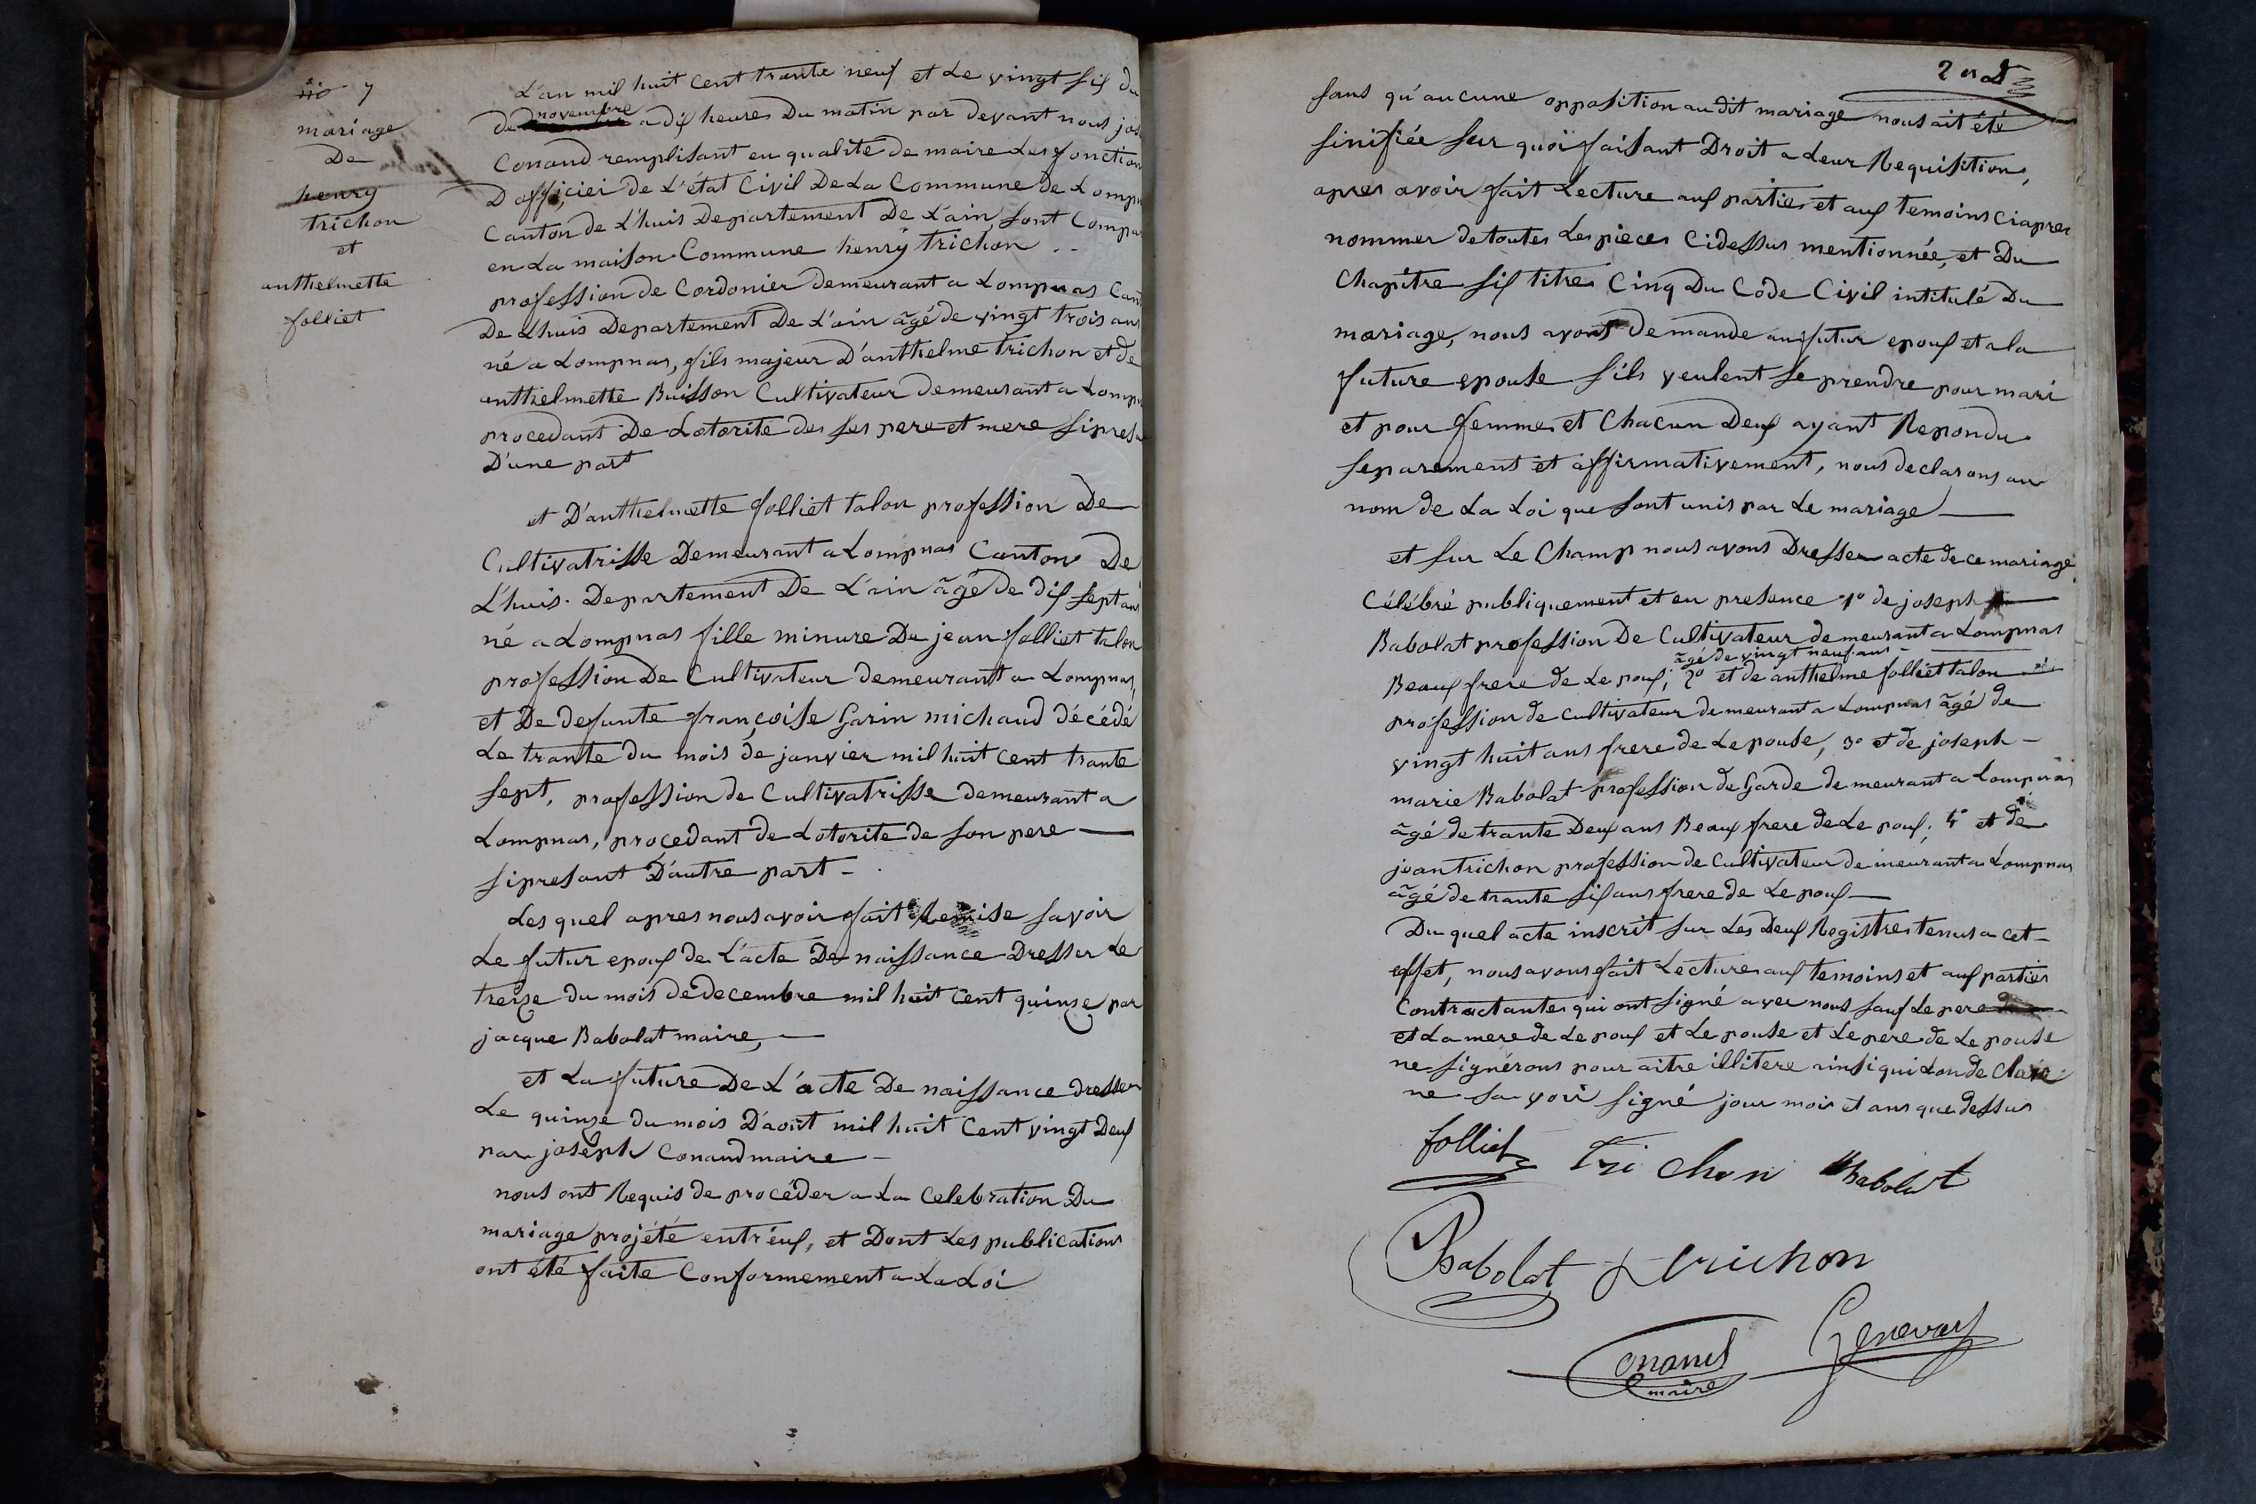 no 7
mariage
De
henry
trichon
et
anthelmette
folliet
L'an mil huit cent trante neuf et Le vingt six du
de novembre a dix heures Du matin par devant nous jos
Conand remplisant en qualité de maire Les fonction
D officiei de L'état Civil De La Commune de Lomp
Canton de L'huis Departement De L'ain, sont Compar
en La maison Commune henry trichon
profession de Cordonier demeurant a Lompnas Can
De Lhuis Departement De L'ain âgé de vingt trois ans
né a Lompnas, fils majeur D'anthelme trichon et de
anthelmette Buisson Cultivateur demeurant a Lomp
procedant De Lotorite des ses pere et mere si pres
D'une part
et D'anthelmette folliet talon profession De
Cultivatrisse Demeurant a Lompnas Canton De
L'huis. Departement De L'ain âgé de dix sept ans
né a Lompnas fille minure Du jean folliet talon
profession De Cultivateur demeurant a Lompnas,
et De defunte françoise Garin michaud décédé
Le trante du mois de janvier mil huit cent trante
sept, profession de Cultivatrisse demeurant a
Lompnas, procedant de Lotorite de son pere
si presant D'autre part
Les quel apres nous avoir fait Remise savoir
Le futur epoux de L'acte De naissance Dresser Le
treize du mois de decembre mil huit cent quinze par
jacque Babolat maire,
et La future De L'acte De naissance dresser
Le quinze du mois D'août mil huit Cent vingt Deux
par joseph Conand maire
nous ont Requis de procéder a La Celebration Du
mariage projété entr'eux, et Dont Les publications
ont été faite Conformement a La Loi
sans qu'aucune opposition au dit mariage nous ait été
sinifiée sur quoi faisant Droit a Leur Requisition,
apres avoir fait Lecture aux parties et aux temoins ciapres
nommer de toutes Les pieces Cidessus mentionnée, et Du
Chapitre six titres Cinq Du Code Civil intitulé Du
mariage, nous avons demande au futur epoux et a la
future epouse s'ils veulent se prendre pour mari
et pour femme et Chacun Deux ayant Repondu
separement et affirmativement, nous declarons au
nom de La Loi que sont unis par Le mariage
et sur Le Champ nous avons Dresser acte de ce mariage
Célébré publiquement et en presence 1o de joseph
Babolat profession De Cultivateur demeurant a Lompnas
âgé de vingt neuf ans
Beaux frere de Le poux; 2o et de anthelme folliet talon
profession de cultivateur demeurant a Lompnas âgé de
vingt huit ans frere de Lepouse, 3o et de joseph
marie Babolat profession de Garde demeurant a Lompnas
âgé de trante Deux ans Beaux frere de Le poux; 4o et de
jean trichon profession de Cultivateur demeurant a Lompnas
âgé de trante six ans frere de Le poux
Du quel acte inscrit sur Les Deux Registres tenus a cet
effet, nous avons fait Lecture aux temoins et aux parties
Contractantes qui ont signé avec nous sauf Le pere
et La mere de Le poux et Le pouse et Le pere de Le pouse
ne signérons pour aitre illitere ainsi qui Lon de Claré
ne savoir signé jour mois et ans que dessus
folliet Trichon Babolat
Babolat trichon
Conand
maire
Genevay